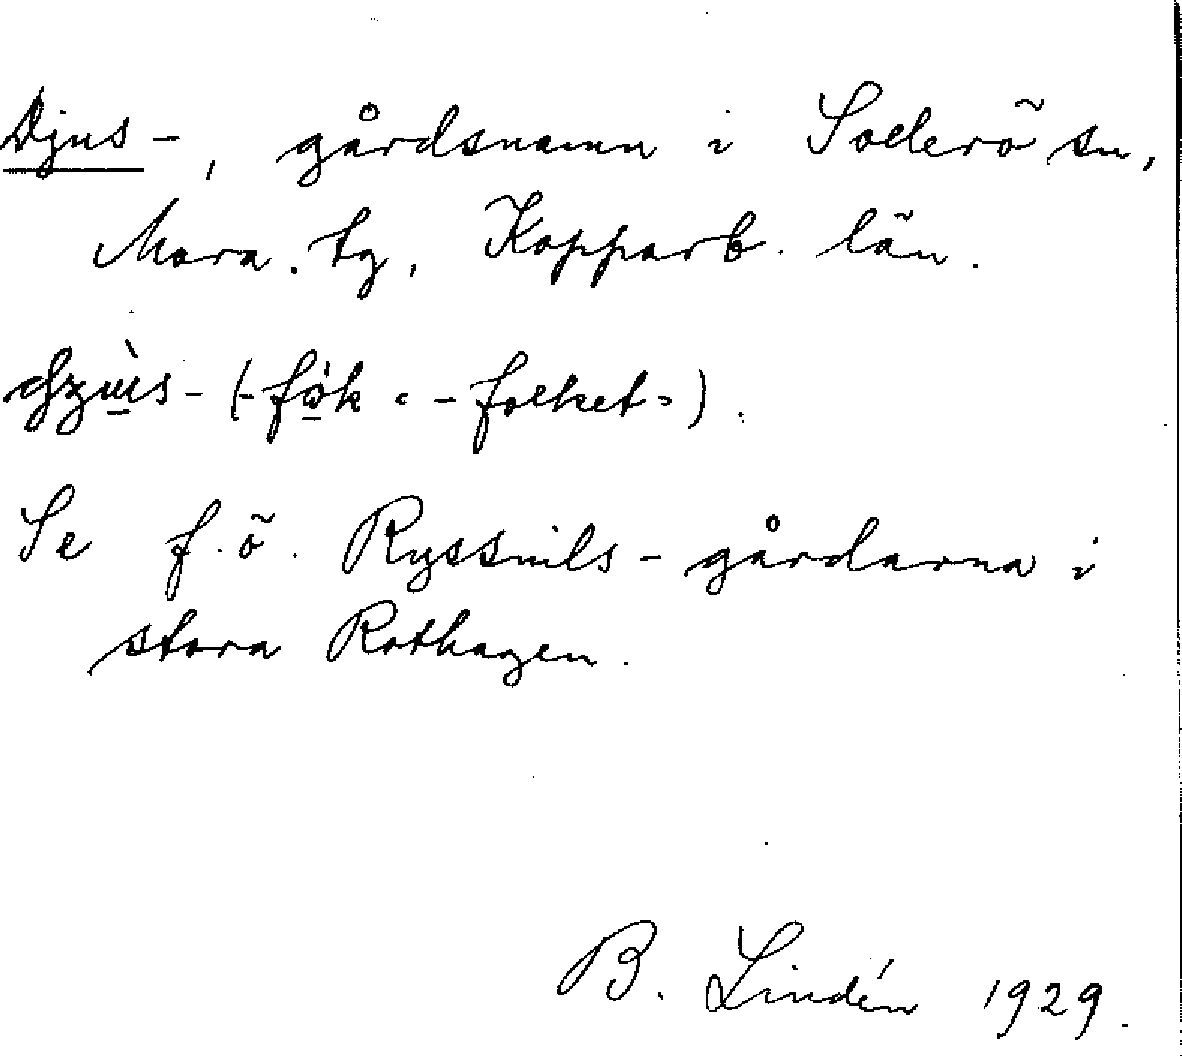 Djus-, gårdsnamn i Sollerö sn,
Mora. tg, Kopparb. län.
(- folket-).
Se f. ö. Ryssnils-gårdarna i
stora Rothagen.
B. Lindén 1929.